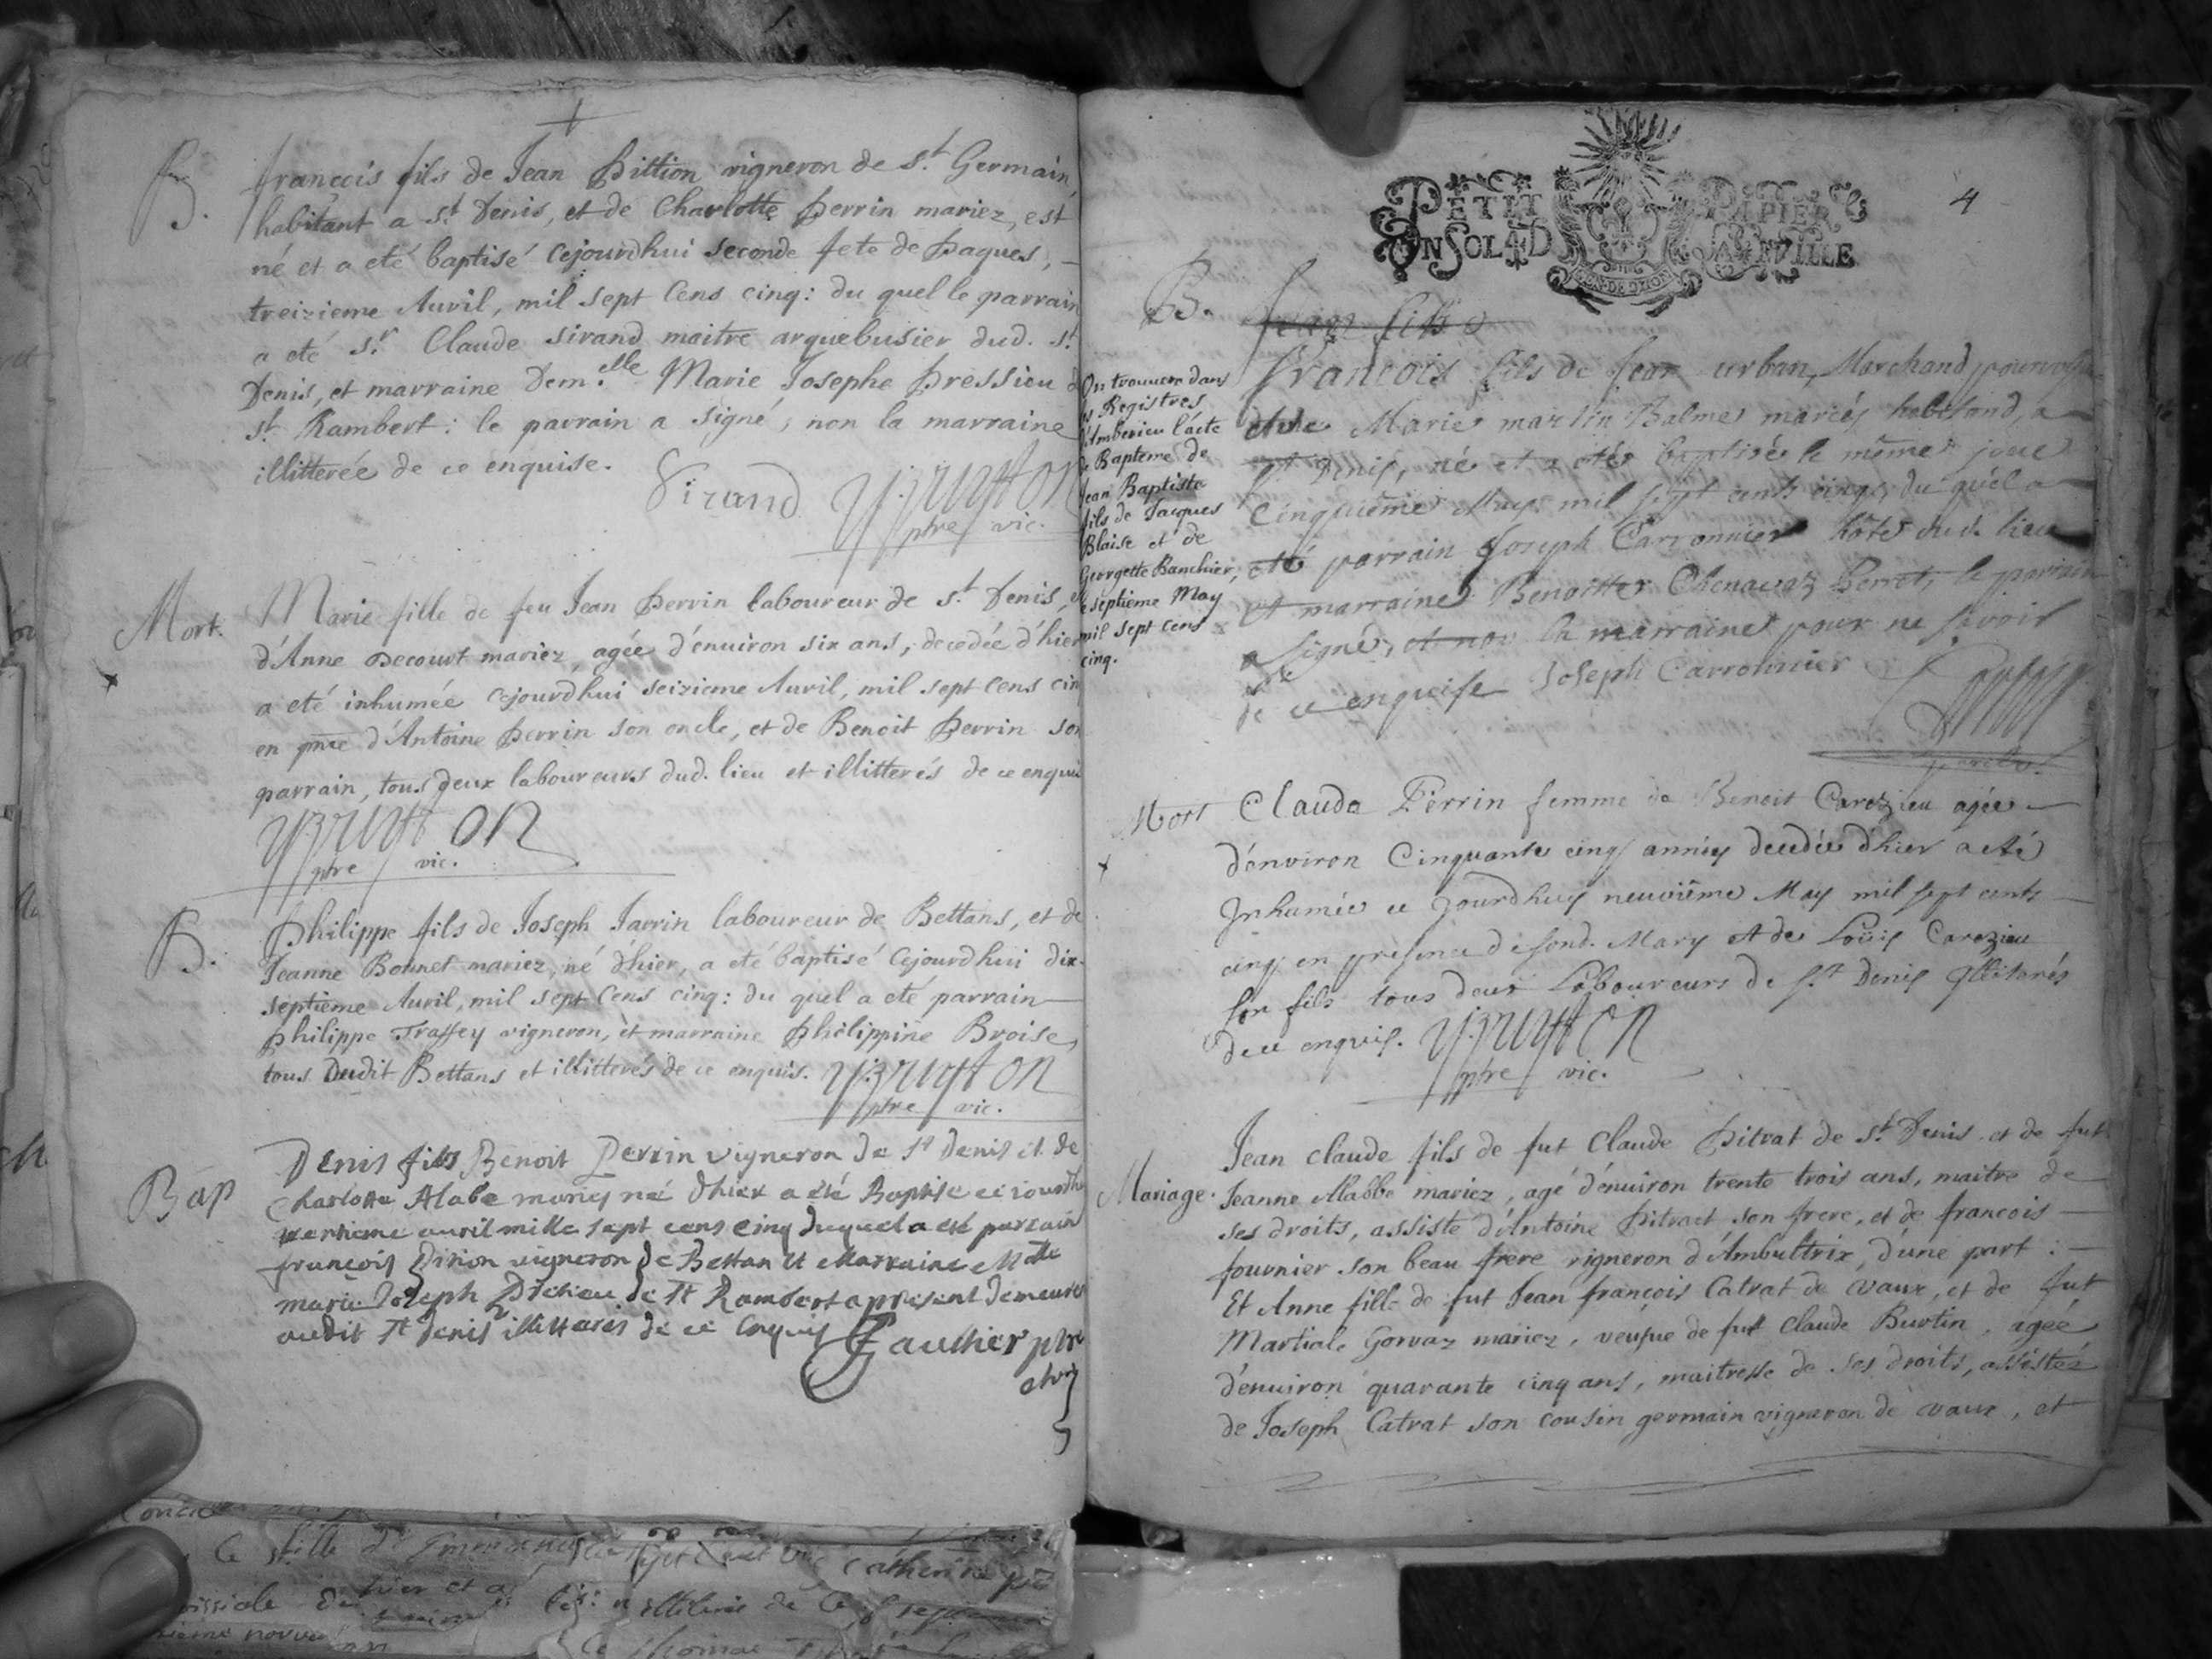 B.
françois fils de Jean Pittion vigneron de s.t Germain,
habitant a s.t Denis, et de Charlotte Perrin mariez, est
né et a eté baptisé cejourdhui seconde fete de Paques,
treizieme Auril, mil sept cens cinq: du quel le parrain
a eté s.r Claude Sirand maitre arquebusier dud. s.t
Denis, et marraine Dem.elle Marie Josephe Pressieu
s.t Rambert: le parrain a signé, non la marraine
illitterée de ce enquise.
Sirand
ptre vic.
Mort.
Marie fille de feu Jean Perrin laboureur de s.t Denis,
d'Anne Decourt mariez, agée d'enuiron six ans, decedée d'hier
a eté inhumée cejourdhui seizieme Auril, mil sept cens cinq
en pnce d'Antoine Perrin son oncle, et de Benoit Perrin son
parrain, tous deux laboureurs dud. lieu et illitterés de ce enquis
ptre vic.
B.
Philippe fils de Joseph Jarrin laboureur de Bettans, et de
Jeanne Bonnet mariez, né d'hier, a eté baptisé cejourdhui dix-
septieme Auril, mil sept cens cinq: du quel a eté parrain
Philippe Traffey vigneron, et marraine Philippine Broise,
tous Dudit Bettans et illitterés de ce enquis.
ptre vic.
Bap
Denis fils Benoit Perrin vigneron de st Denis et de
Charlotte Alabe mariez né dhier a été Baptise ce jourdhu
auril mille sept cens cinq duquel a été parrain
françois vigneron de Bettan et Marraine Mlle
marie Joseph de st Rambert apresent demeure
audit st denis illitterés de ce enquis Gauthier ptre
4
PETIT PAPIER
UN SOL 4 D LA FEUILLE
B.
Jean fils
On trouuera dans
les Registres
d'Amberieu l'acte
de Bapteme de
Jean Baptiste
fils de Jacques
Blaise et de
Georgette Banchier,
le septieme May
mil sept cens
cinq.
François fils de Jean urban, Marchand
et de Marie martin Balme mariés habitand, a
st Denis, né et a étés baptisé le même jour
Cinquième May mil sept cents cinq, du quél a
été parrain Joseph Carronnier hôte dud. lieu
et marraine Benoitte Chenavaz Perret, le parrain
a signé, et non la marraine pour ne sçavoir
de ce enquise Joseph Carronnier
Mort
Clauda Perrin femme de Benoit Carezieu agée
d'environ Cinquante cinq années decedée d'hier a été
Inhumée ce jourdhuy neuviême May mil sept cents
cinq en presence de sond. Mary et de Loüis Carezieu
son fils tous deux Laboureurs de st Denis Illiterés
de ce enquis.
ptre vic.
Mariage.
Jean claude fils de fut Claude Pitrat de s.t Denis et de fut
Jeanne Alabbe mariez, agé d'enuiron trente trois ans, maitre de
ses droits, assisté d'Antoine Pitrat son frere, et de françois
fournier son beau frere vigneron d'Ambutrix, d'une part:
Et Anne fille de fut Jean françois Catrat de vaux, et de fut
Martiale Gorvaz mariez, veufue de fut Claude Burtin, agée
d'enuiron quarante cinq ans, maitresse de ses droits, assistée
de Joseph Catrat son cousin germain vigneron de vaux, et